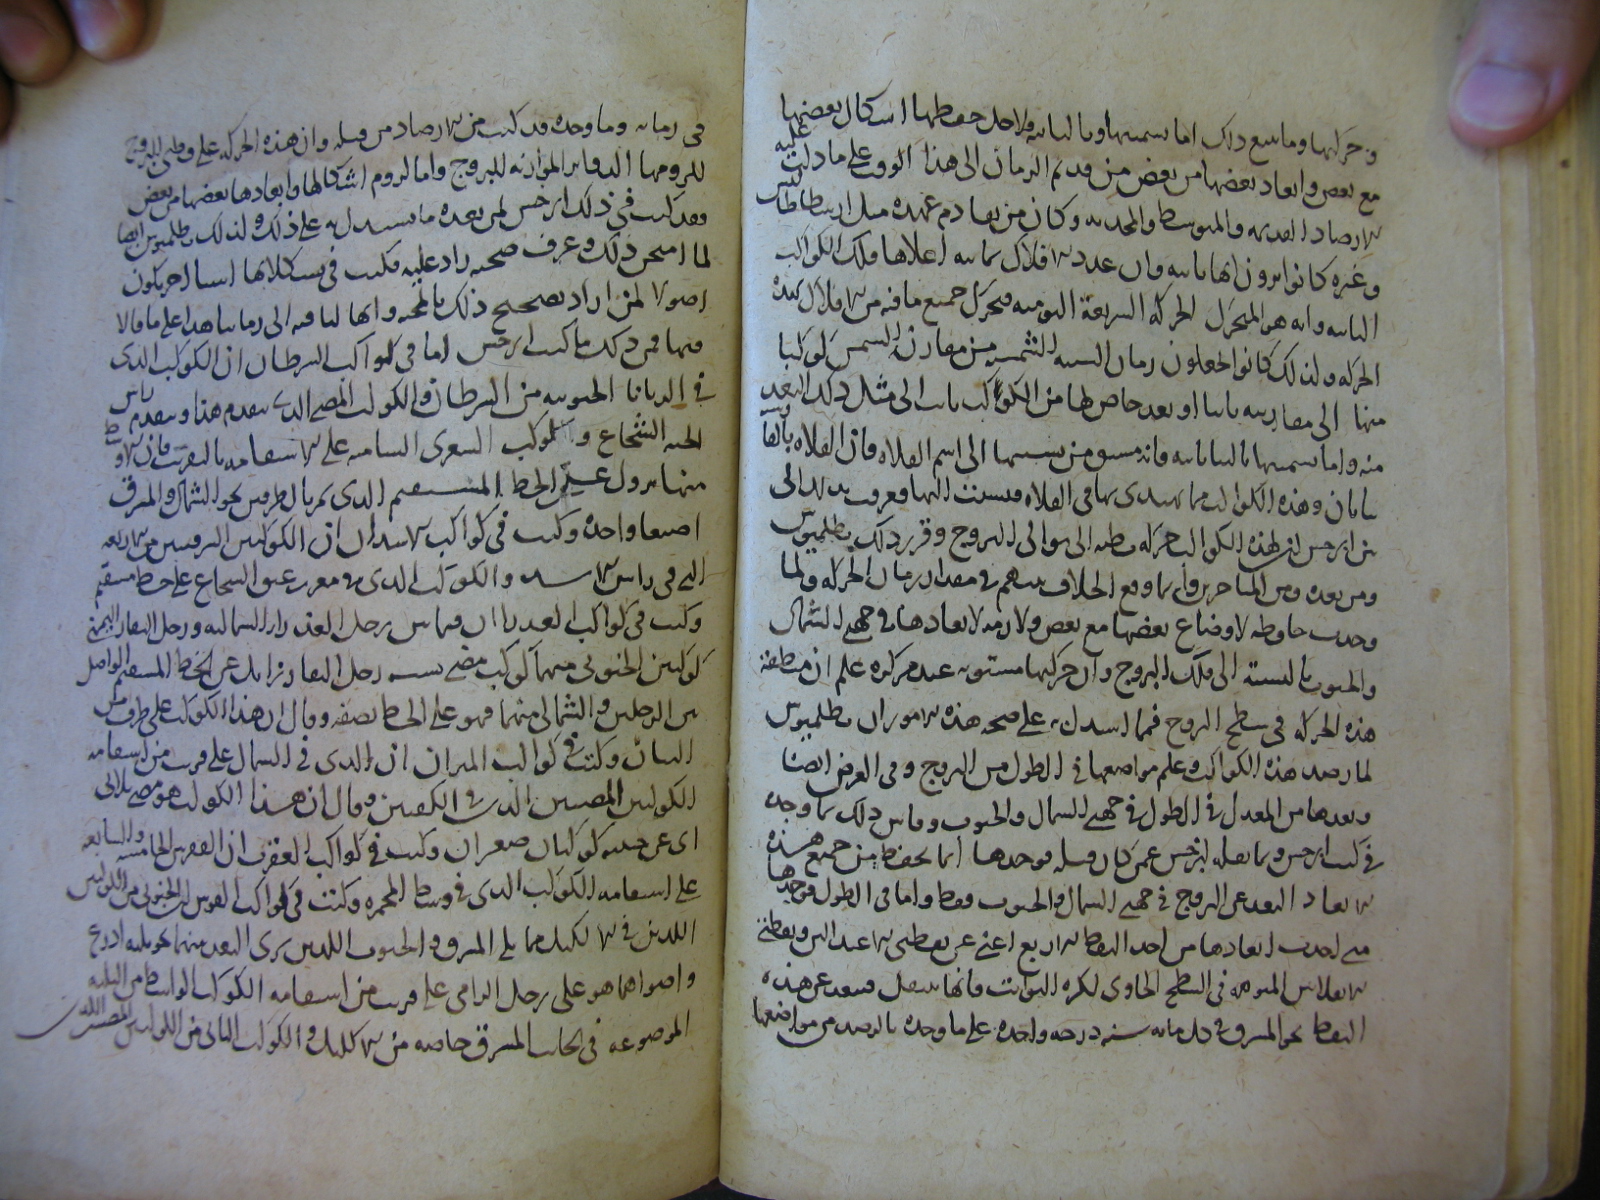 وحركتها وما يتبع ذلك اما تسميتها بالثابتة فلاجل حفظها اشكال بعضها
مع بعض وابعاد بعضها من بعض من قديم الزمان الى هذا الوقت على ما دلت عليه
الارصاد القديمة والمتوسطة والمحدثة وكان من تقادم عهده مثل ارسطاطاليس
وغيره كانوا يرون انها ثابتة وان عدد الافلاك ثمانية اعلاها فلك الكواكب
الثابتة وانه هو المتحرك الحركة السريعة اليومية فيحرك جميع ما فيه من الافلاك بهذه
الحركة ولذلك كانوا يجعلون زمان السنة الشمسية من مفارقة الشمس كوكبا
منها الى مقاربته ثانيا او بعد حاصل لها من الكواكب ثابت الى مثل ذلك البعد
منه واما تسميتها بالبيابانية فانه مشتق من نسبتها الى اسم الفلاة فان الفلاة بالفارسية
بيابان وهذه الكواكب مما يهتدى بها في الفلاة فنسبت اليها وعرفت بذلك الى
بين ابرخس ان لهذه الكواكب حركة بطيئة الى توالى البروج وقرر ذلك بطلميوس
ومن بعده ومن المتاخرين وانما وقع الخلاف بينهم في مقدار زمان الحركة ولما
وجدت حافظة لاوضاع بعضها مع بعض ولازمة لابعادها في جهتى الشمال
والجنوب بالنسبة الى فلك البروج وان حركتها مستوية عند مركزه علم ان منطقة
هذه الحركة في سطح البروج فمما استدل به على صحة هذه الامور ان بطلميوس
لما رصد هذه الكواكب وعلم مواضعها في الطول من البروج وفي العرض ايضا
وبعدها من المعدل في الطول في جهتى الشمال والجنوب وقايس ذلك بما وجده
في كتب ابرخس وبما نقله ابرخس عمن كان قبله فوجدها انما يحفظ من جميع هذه
الابعاد البعد عن البروج في جهتى الشمال والجنوب فقط واما في الطول فوجدها
متى اخذت ابعادها من احد النقط الاربع اعنى عن نقطتى الاعتدالين ونقطتى
الانقلابين المتوهمة في السطح الحاوى لكرة الثوابت فانها تنتقل فتبعد عن هذه
النقط نحو المشرق في كل مائة سنة درجة واحدة على ما وجده بالرصد من مواضعها
في زمانه وما وجده قد كتب من الارصاد من قبله وان هذه الحركة على قطبى البروج
للزومها الدوائر الموازية للبروج واما لزوم اشكالها وابعادها بعضها من بعض
فقد كتب في ذلك ابرخس لمن بعده ما يستدل به على ذلك ولذلك بطلميوس ايضا
لما امتحن ذلك وعرف صحته زاد عليه فكتب في تشكلاتها اشيا اخر تكون
اصولا لمن اراد تصحيح ذلك بالمحنة وانها لباقية الى زماننا هذا على ما قالا
فيها فمن ذلك ما كتب ابرخس اما في كواكب السرطان ان الكوكب الذى
في الزبانا الجنوبية من السرطان والكوكب المضى الذى يتقدم هذا ويتقدم راس
الحية الشجاع وكوكب الشعرى الشامية على الاستقامة بالتقريب فان الاوسط
منها يزول عن الخط المستقيم الذى يمر بالطرفين نحو الشمال والمشرق
اصبعا واحدة وكتب في كواكب الاسد ان الكوكبين الشرقيين من الاربعة
التى في راس الاسد والكوكب الذى في مغرز عنق الشجاع على خط مستقيم
وكتب في كواكب العذرا ان فيما بين رجل العذراء الشمالية ورجل البقار اليمنى
كوكبين الجنوبى منهما كوكب مضى يشبه رجل البقار زايل عن الخط المستقيم الواصل
بين الرجلين والشمالى منهما فهو على الخط نصفه وقال ان هذا الكوكب على طرف من
وكتب في كواكب الميزان ان الذى في الشمال على قرب من استقامة
الكوكبين المضيين الذى في الكفتين وقال ان هذا الكوكب هو مضى ثلاثى
اى عن جنبيه كوكبان صغيران وكتب في كواكب العقرب ان الفقرتين الخامسة والسابعة
على استقامة الكوكب الذى في وسط المجمرة وكتب في كواكب القوس ان الجنوبى من الكوكبين
اللذين في الاكليل مما يلى المشرق والجنوب اللذين يرى البعد بينهما نحو ثلثة اذرع
واضواهما هو على رجل الرامى على قرب من استقامة الكوكب الوسط من الثلثة
الموضوعة في الجانب المشرق خاصة من الاكليل والكوكب الثانى من الكوكبين المضيين اللذين